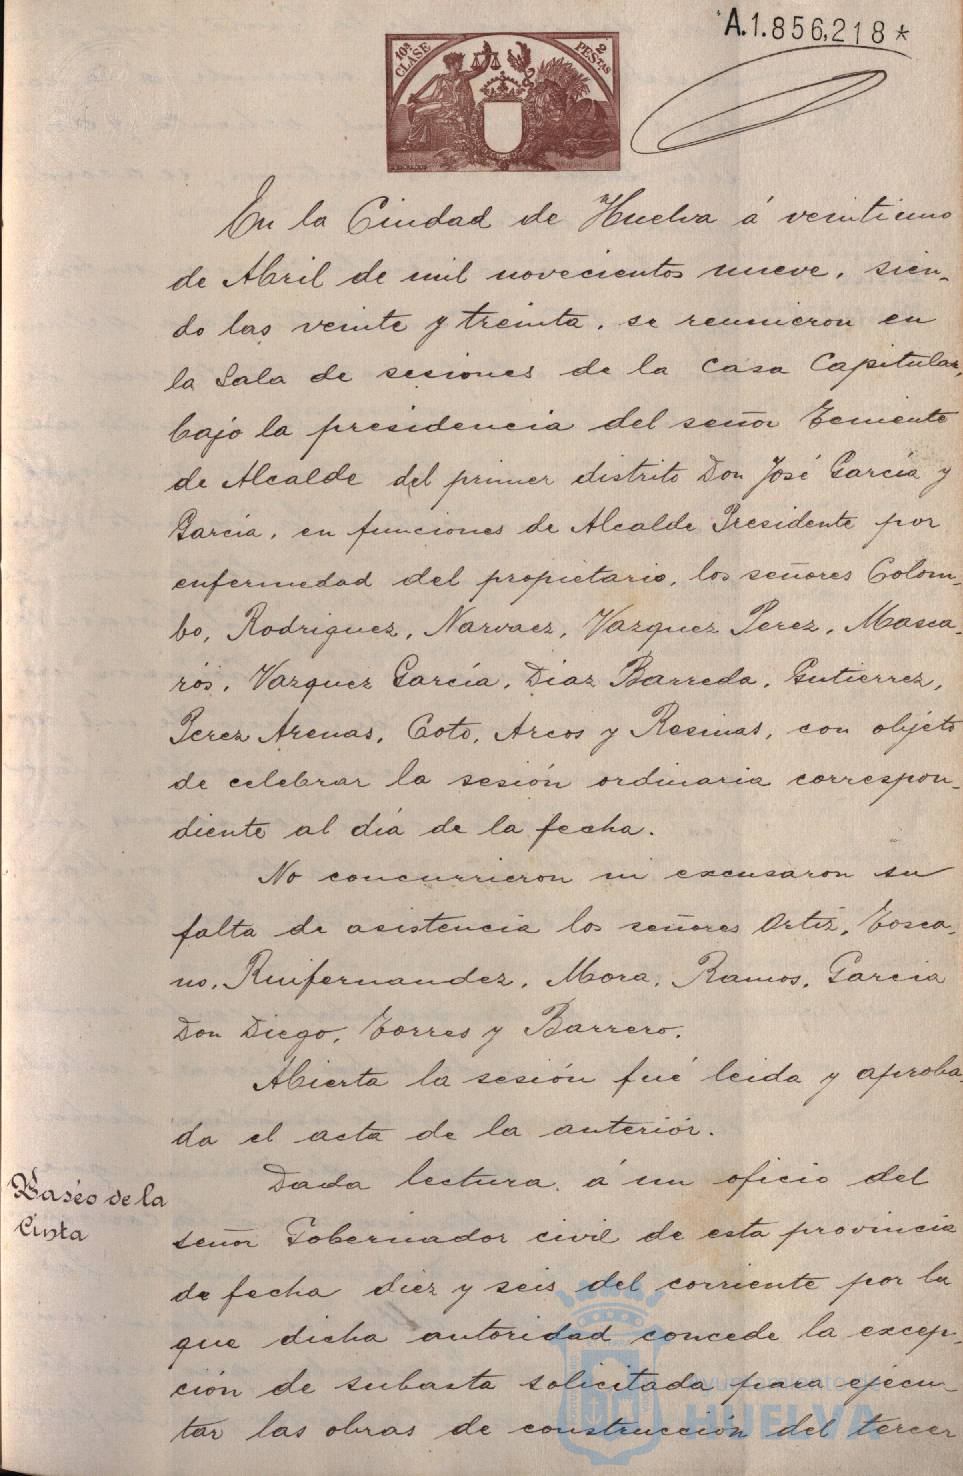 A.1.856.218*
10ª CLASE
2 PESTAS
En la Ciudad de Huelva á veintiuno
de Abril de mil novecientos nueve, sien-
do las veinte y treinta, se reunieron en
la Sala de sesiones de la Casa Capitular,
bajo la presidencia del señor Teniente
de Alcalde del primer distrito Don José García y
García, en funciones de Alcalde Presidente por
enfermedad del propietario, los señores Colom-
bo, Rodriguez, Narvaez, Vazquez Perez, Masca-
rós, Vazquez García, Diaz Barreda, Gutierrez,
Perez Arenas, Coto, Arcos y Resinas, con objeto
de celebrar la sesión ordinaria correspon-
diente al día de la fecha.
No concurrieron ni excusaron su
falta de asistencia los señores Ortiz, Tosca-
no, Ruifernandez, Mora, Ramos, Garcia
Don Diego, Torres y Barrero.
Abierta la sesión fué leida y aproba-
da el acta de la anterior.
Paséo de la
Cinta
Dada lectura á un oficio del
señor Gobernador civil de esta provincia
de fecha diez y seis del corriente por la
que dicha autoridad concede la excep-
ción de subasta solicitada para ejecu-
tar las obras de construcción del tercer
Ayuntamiento de
HUELVA